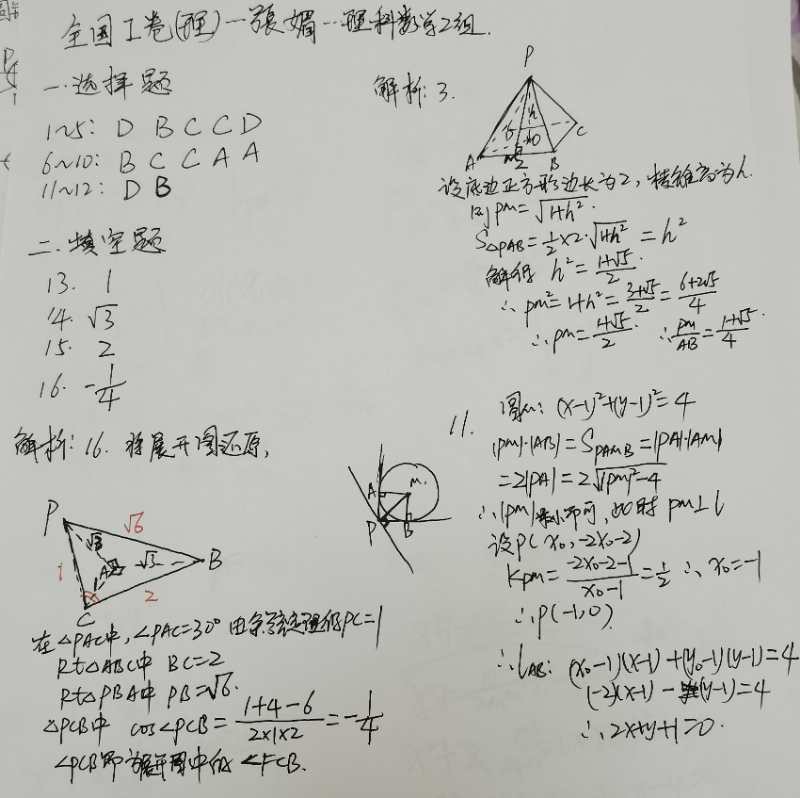 全国I卷(理)一張媚--理科数学2组.
一.选择题
1~5: D B C C D
6~10: B C C A A
11~12: D B
二.填空题
13. 1
14. √3
15. 2
16. -1/4
解析: 16. 将展开图还原,
P √6 √3 A √3 B 1 C 2
在△PAC中, ∠PAC=30° 由余弦定理得PC=1
Rt△ABC中 BC=2
Rt△PBA中 PB=√6.
△PCB中 cos∠PCB = (1+4-6)/(2×1×2) = -1/4
∠PCB即为展开图中的 ∠FCB.
解析: 3.
P h C A M B
设底边正方形边长为2, 棱锥高为h.
则PM=√(1+h²).
S△PAB=1/2×2·√(1+h²) = h²
解得 h²=(1+√5)/2.
∴PM²=1+h²=(3+√5)/2=(6+2√5)/4
∴PM=(1+√5)/2 ∴PM/AB=(1+√5)/4.
11. 圆M: (x-1)²+(y-1)²=4
A M. P B
|PM|·|AB|=S PAMB=|PA|·|AM|
=2|PA|=2√(|PM|²-4)
∴|PM|最小即可, 此时 PM⊥l
设P(x₀,-2x₀-2)
KPM=(-2x₀-2-1)/(x₀-1)=1/2 ∴x₀=-1
∴P(-1,0)
∴lAB: (x₀-1)(x-1)+(y₀-1)(y-1)=4
(-2)(x-1)-(y-1)=4
∴2x+y+1=0.